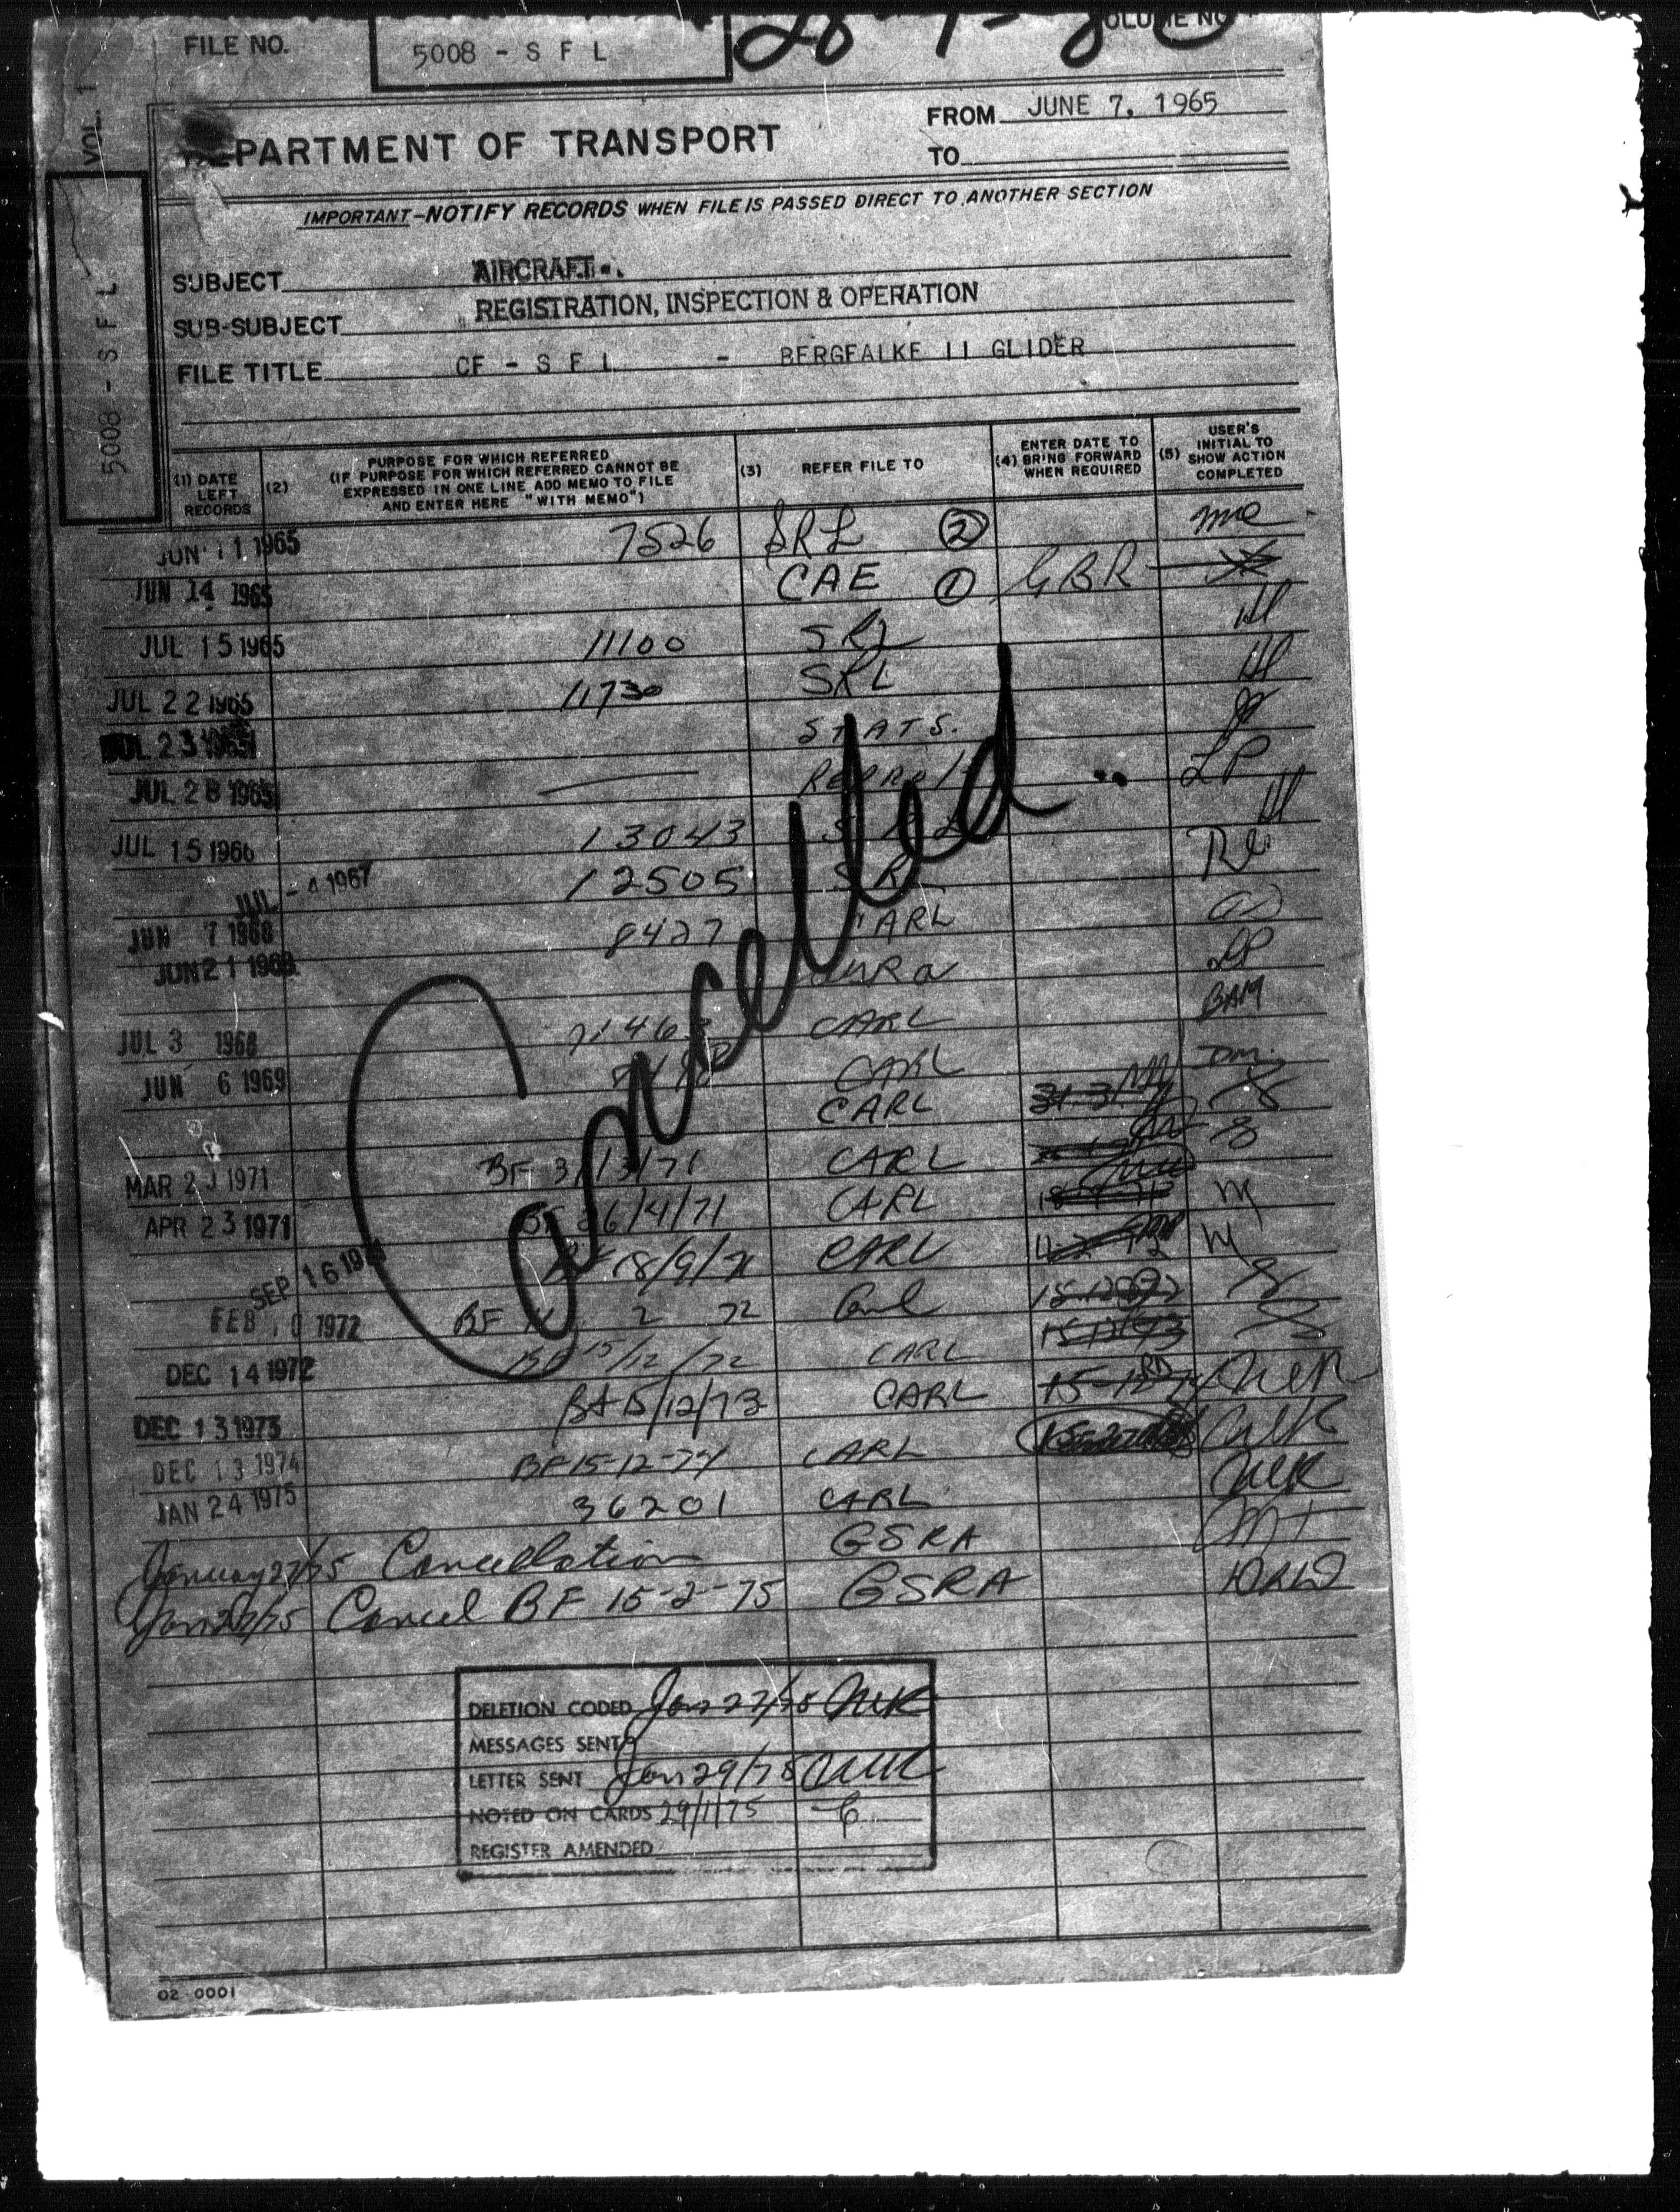 FILE NO. 5008 - S F L
VOLUME NO
VOL. 1
5008 - S F L
PARTMENT OF TRANSPORT
FROM JUNE 7, 1965
TO
IMPORTANT-NOTIFY RECORDS WHEN FILE IS PASSED DIRECT TO ANOTHER SECTION
SUBJECT AIRCRAFT-
SUB-SUBJECT REGISTRATION, INSPECTION & OPERATION
FILE TITLE CF - S F L - BERGFALKE II GLIDER
(1) DATE LEFT RECORDS
(2) PURPOSE FOR WHICH REFERRED
(IF PURPOSE FOR WHICH REFERRED CANNOT BE
EXPRESSED IN ONE LINE ADD MEMO TO FILE
AND ENTER HERE "WITH MEMO")
(3) REFER FILE TO
(4) ENTER DATE TO BRING FORWARD WHEN REQUIRED
(5) USER'S INITIAL TO SHOW ACTION COMPLETED
JUN 11 1965 7526 SRL 2
JUN 14 1965 CAE 1 GBR
JUL 15 1965 11100 SRL
JUL 22 1965 11730 SRL
JUL 23 1965 STATS.
JUL 28 1965 LP
JUL 15 1966 13043
JUL - 4 1967 12505
JUN 7 1968 8427 CARL
JUN 21 1968 LP
JUL 3 1968 CARL BAM
JUN 6 1969 CARL
CARL
MAR 23 1971 BF 31/3/71 CARL
APR 23 1971 BF 26/4/71 CARL
SEP 16 1971 BF 18/9/71 CARL
FEB 10 1972 BF 2 72
DEC 14 1972 BF 15/12/72 CARL
DEC 13 1973 BF 15/12/73 CARL
DEC 13 1974 BF 15-12-74 CARL
JAN 24 1975 36201 CARL
January 27/75 Cancellation GSRA
Cancel BF 15-2-75 GSRA
Cancelled
DELETION CODED Jan 27/75
MESSAGES SENT
LETTER SENT Jan 29/75
NOTED ON CARDS 29/1/75
REGISTER AMENDED
02 0001